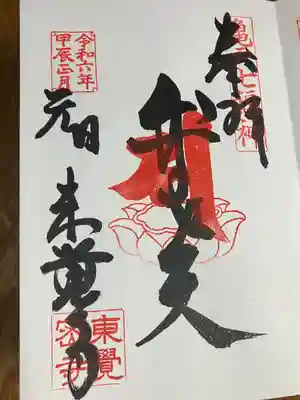 奉拝
亀戸七福神
弁財天
令和六年
甲辰正月
元日
東覚寺
東覺
密寺